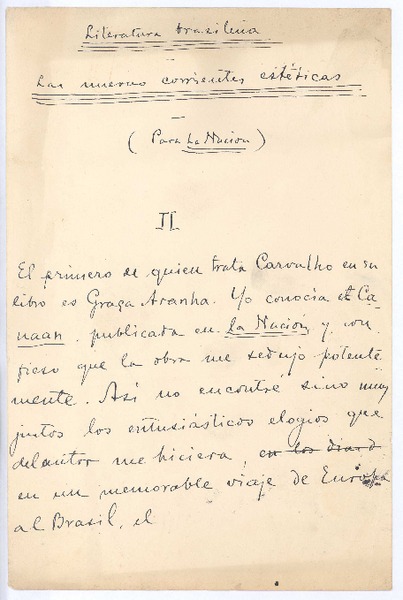 Literatura brasilena
Las nuevas corrientes estéticas
(Para La Nacion)
II
El primero de quien trata Carvalho en su
libro es Graça Aranha. Yo conocía Ca-
naan, publicada en la Nación, y con-
fieso que la obra me sedujo potente
mente. Así no encontré sino muy
justos los entusiásticos elogios que
del autor me hiciera, en los
en un memorable viaje de Europa
al Brasil, el